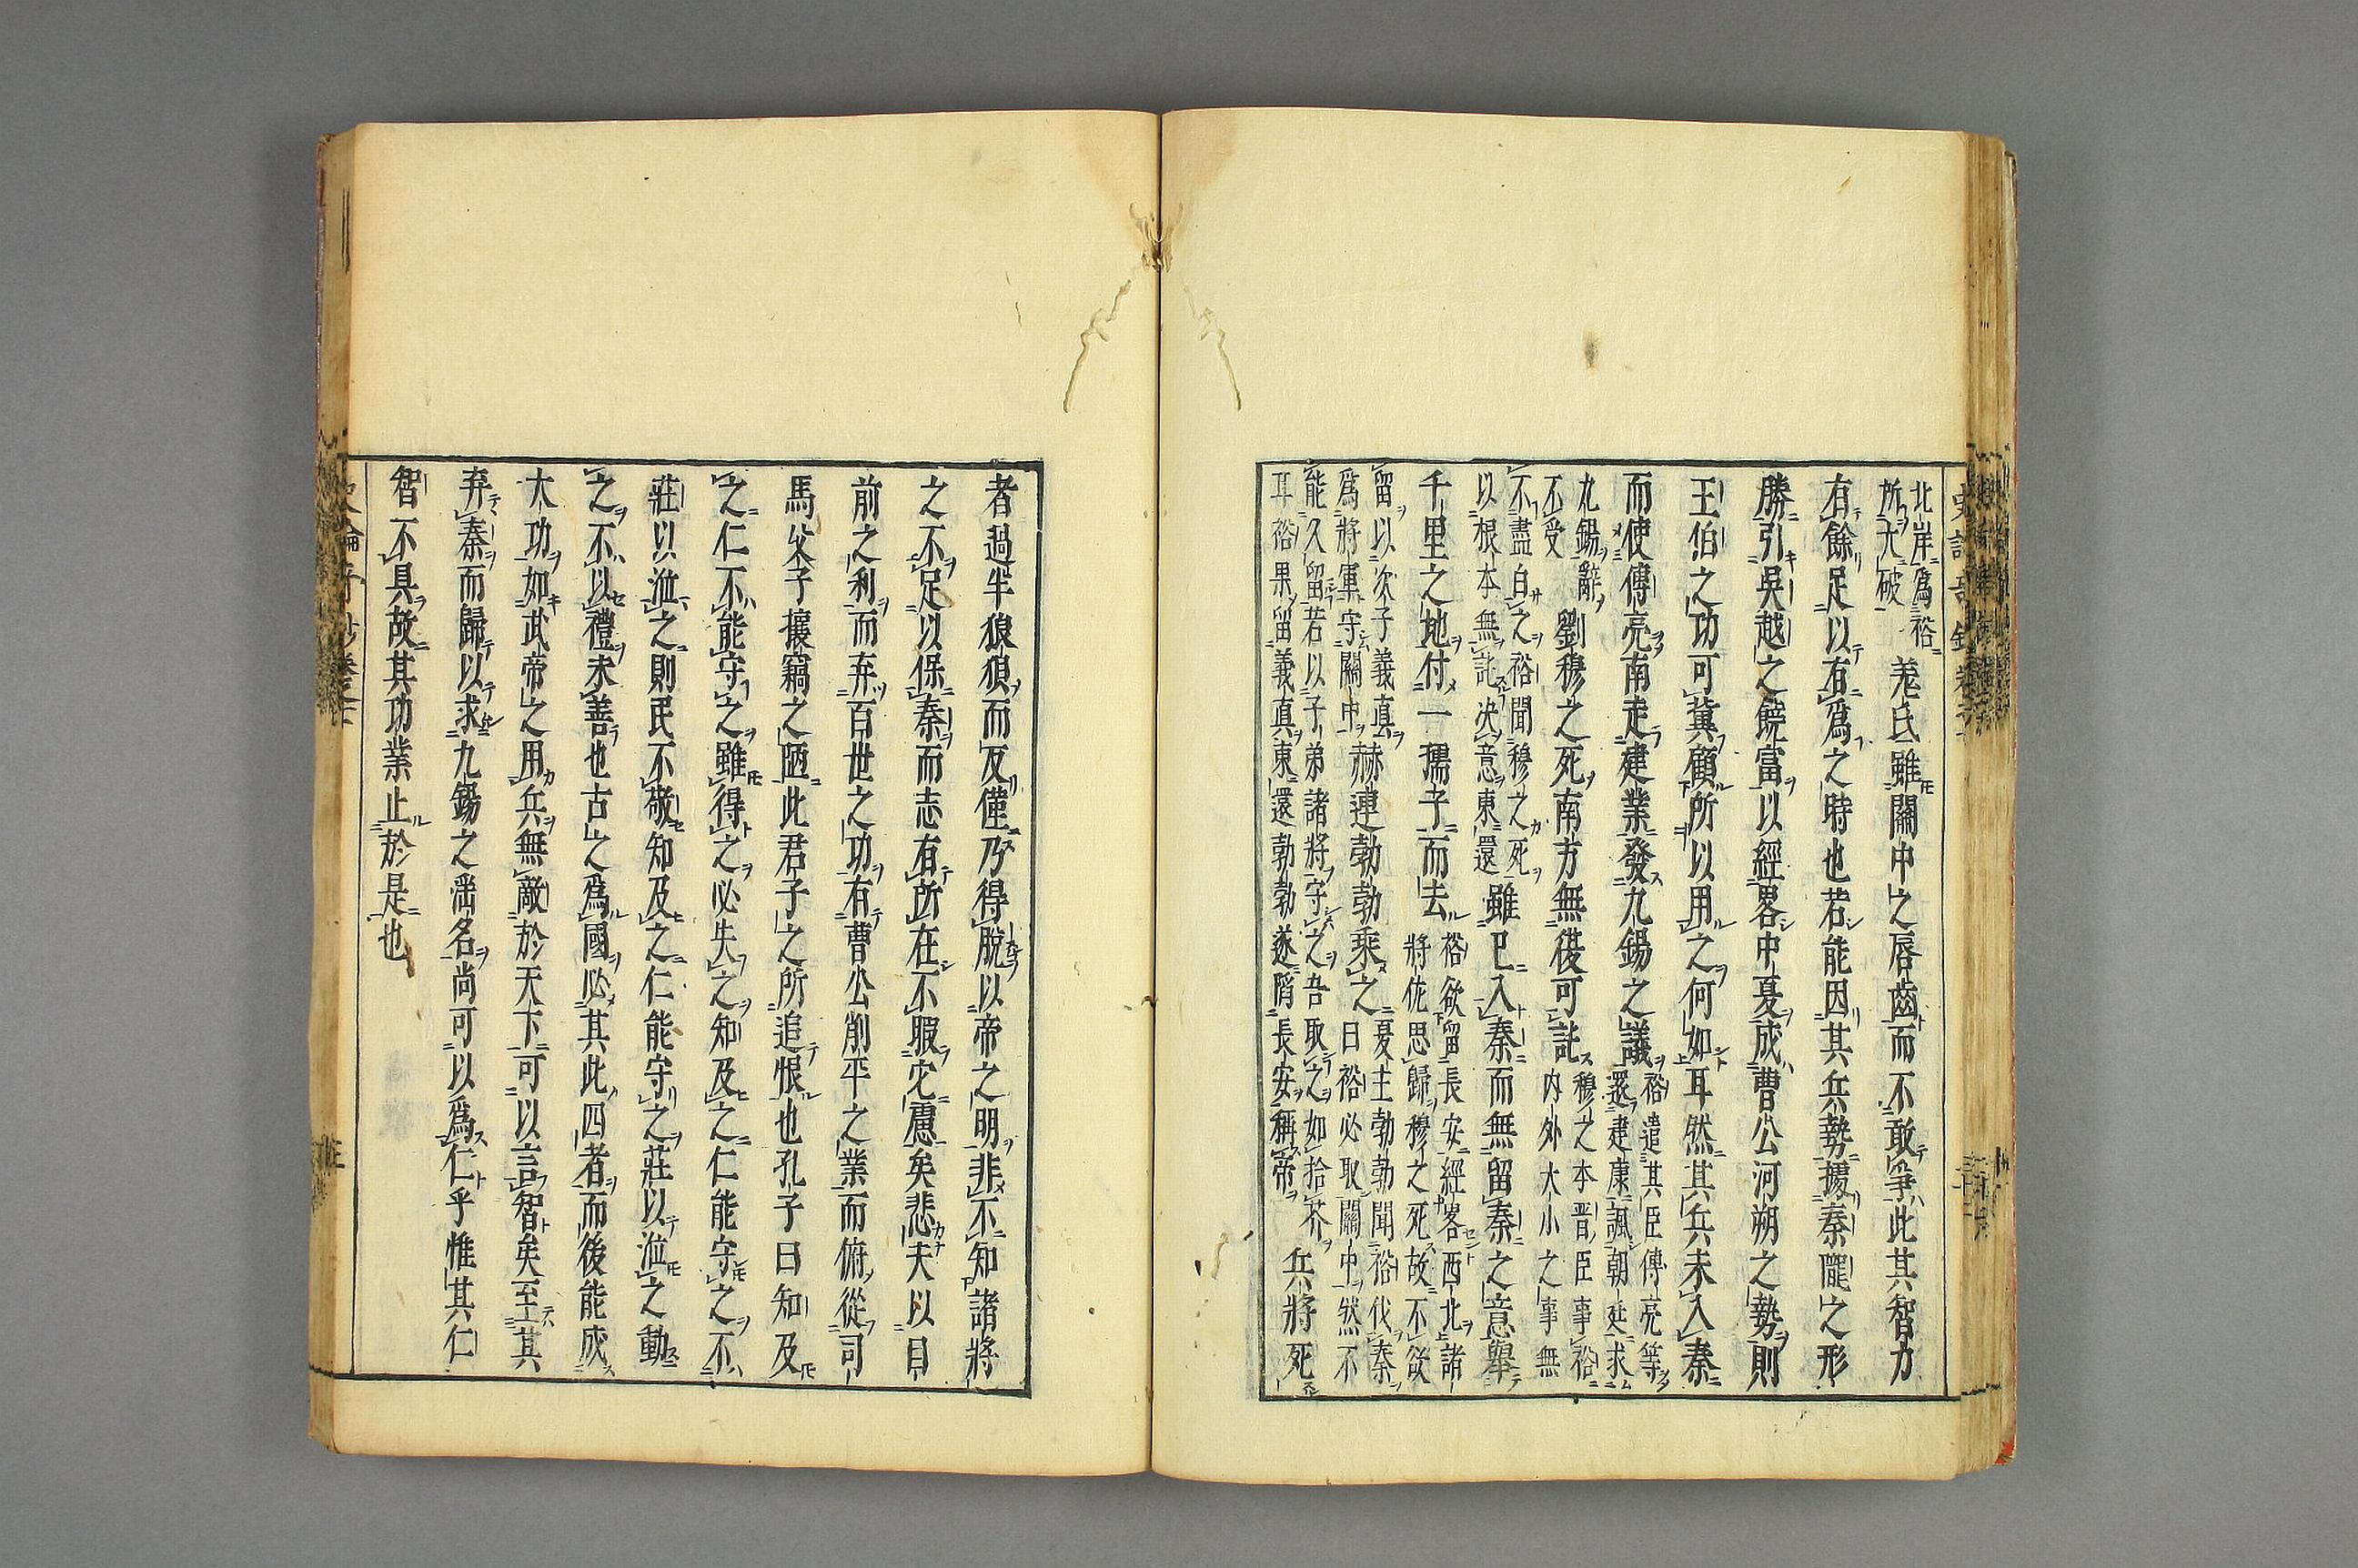 北岸爲裕
所大破
羌氏雖關中之唇齒而不敢爭此其智力
有餘足以有爲之時也若能因其兵勢據秦隴之形
勝引吳越之饒富以經畧中夏成曹公河朔之勢則
王伯之功可冀顧所以用之何如耳然其兵未入秦
而使傅亮南走建業發九錫之議
裕遣其臣傅亮等
還建康諷朝廷求
九錫辭
不受
劉穆之死南方無復可託
穆之本晋臣事裕
内外大小之事無
不盡自之裕聞穆之死
以根本無託決意東還
雖已入秦而無留秦之意舉
千里之地付一孺子而去
裕欲留長安經畧西北諸
將佐思歸穆之死故不欲
留以次子義真
爲將軍守關中
赫連勃勃乘之
夏主勃勃聞裕伐秦
曰裕必取關中然不
能久留若以子弟諸將守之吾取之如拾芥
耳裕果留義真東還勃勃遂陷長安稱帝
兵將死
者過半狼狽而反僅乃得脫以帝之明非不知諸將
之不足以保秦而志有所在不暇它慮矣悲夫以目
前之利而弃百世之功有曹公削平之業而俯從司
馬父子攘竊之陋此君子之所追恨也孔子曰知及
之仁不能守之雖得之必失之知及之仁能守之不
莊以涖之則民不敬知及之仁能守之莊以涖之動
之不以禮未善也古之爲國必其此四者而後能成
大功如武帝之用兵無敵於天下可以言智矣至其
弃秦而歸以求九錫之淆名尚可以爲仁乎惟其仁
智不具故其功業止於是也